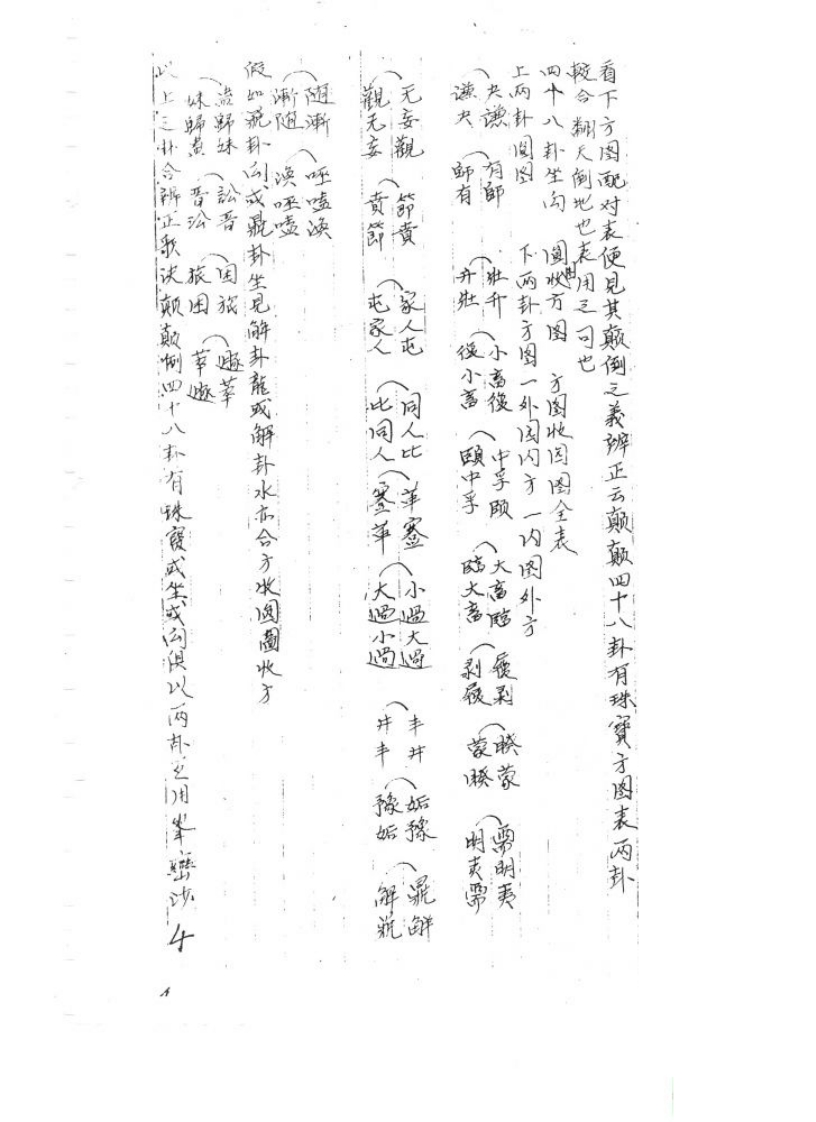 看下方图配对表便見其颠倒之義辨正云颠颠四十八卦有珠寶方图表两卦
較合翻天倒地也表用之可也
四十八卦坐向　圓收方图　方图收圆图全表
上两卦圓图　下两卦方图一外圆内方一内圆外方
夬謙　有師　壯升　小畜復　中孚頤　大畜臨　履剥　睽蒙　需明夷
謙夬　師有　升壯　復小畜　頤中孚　臨大畜　剥履　蒙睽　明夷需
无妄觀　節賁　家人屯　同人比　革蹇　小過大過　丰井　姤豫　鼎解
觀无妄　賁節　屯家人　比同人　蹇革　大過小過　井丰　豫姤　解鼎
随漸　呸嗑渙
漸随　渙呸嗑
假如鼎卦向或鼎卦坐見解卦龍或解卦水亦合方收圆圖收方
蠱歸妹　訟晋　困旅　遯萃
妹歸蠱　晋訟　旅困　萃遯
以上之卦合辨正歌决颠颠倒四十八卦有珠寶或坐或向俱以两卦之用峯巒沙
4